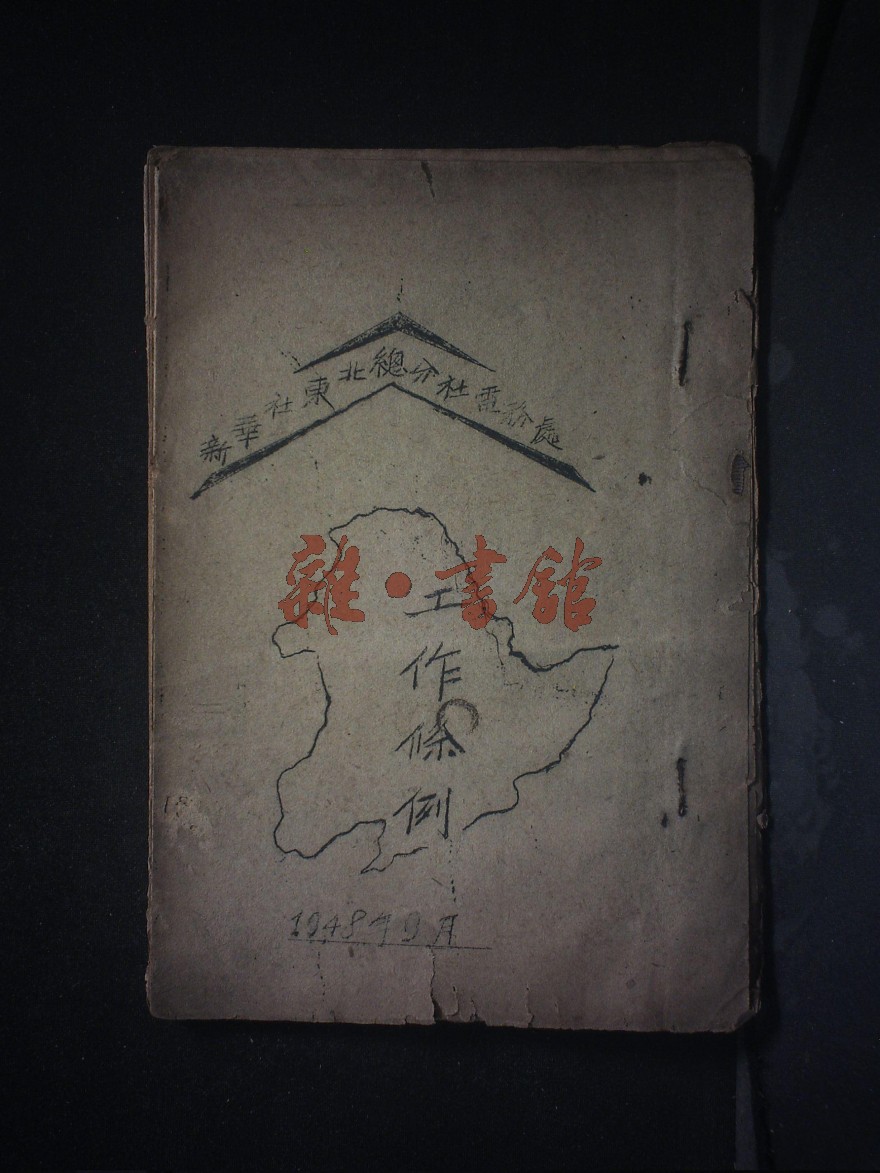 新華社東北總分社電務處
雜·書館
工
作
條
例
1948年9月